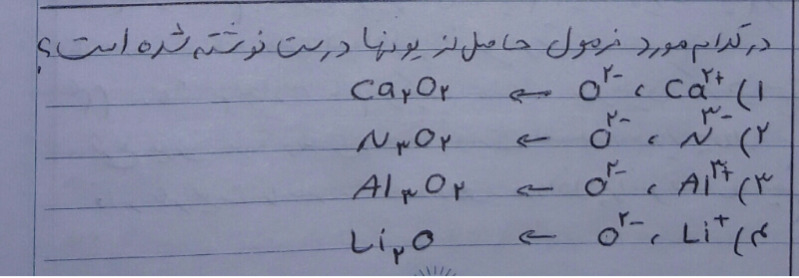 در کدام مورد فرمول حاصل از یونها درست نوشته شده است؟
۱) Ca²⁺ ، O²⁻ ← Ca₂O₂
۲) N³⁻ ، O²⁻ ← N₃O₂
۳) Al³⁺ ، O²⁻ ← Al₃O₂
۴) Li⁺ ، O²⁻ ← Li₂O